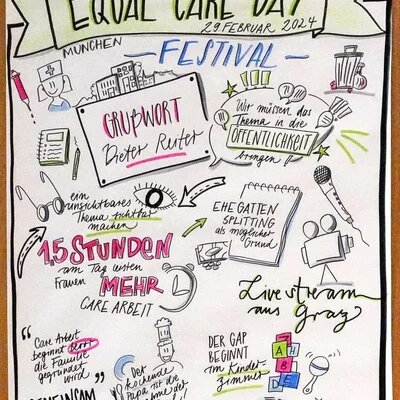 EQUAL CARE DAY
29. FEBRUAR 2024
MÜNCHEN
FESTIVAL
GRUßWORT
Dieter Reiter
Wir müssen das
Thema in die
ÖFFENTLICHKEIT
bringen!
ein
unsichtbares
Thema sichtbar
machen
EHEGATTEN
SPLITTING
als möglicher
Grund
1,5 STUNDEN
am Tag leisten
Frauen MEHR
CARE ARBEIT
Livestream
aus Graz
"Care Arbeit
beginnt bevor
die Familie
gegründet
wird"
Der
kochende
Papa ist die
DER GAP
BEGINNT
im Kinder-
zimmer
A H
B
D E
GEMEINSAM